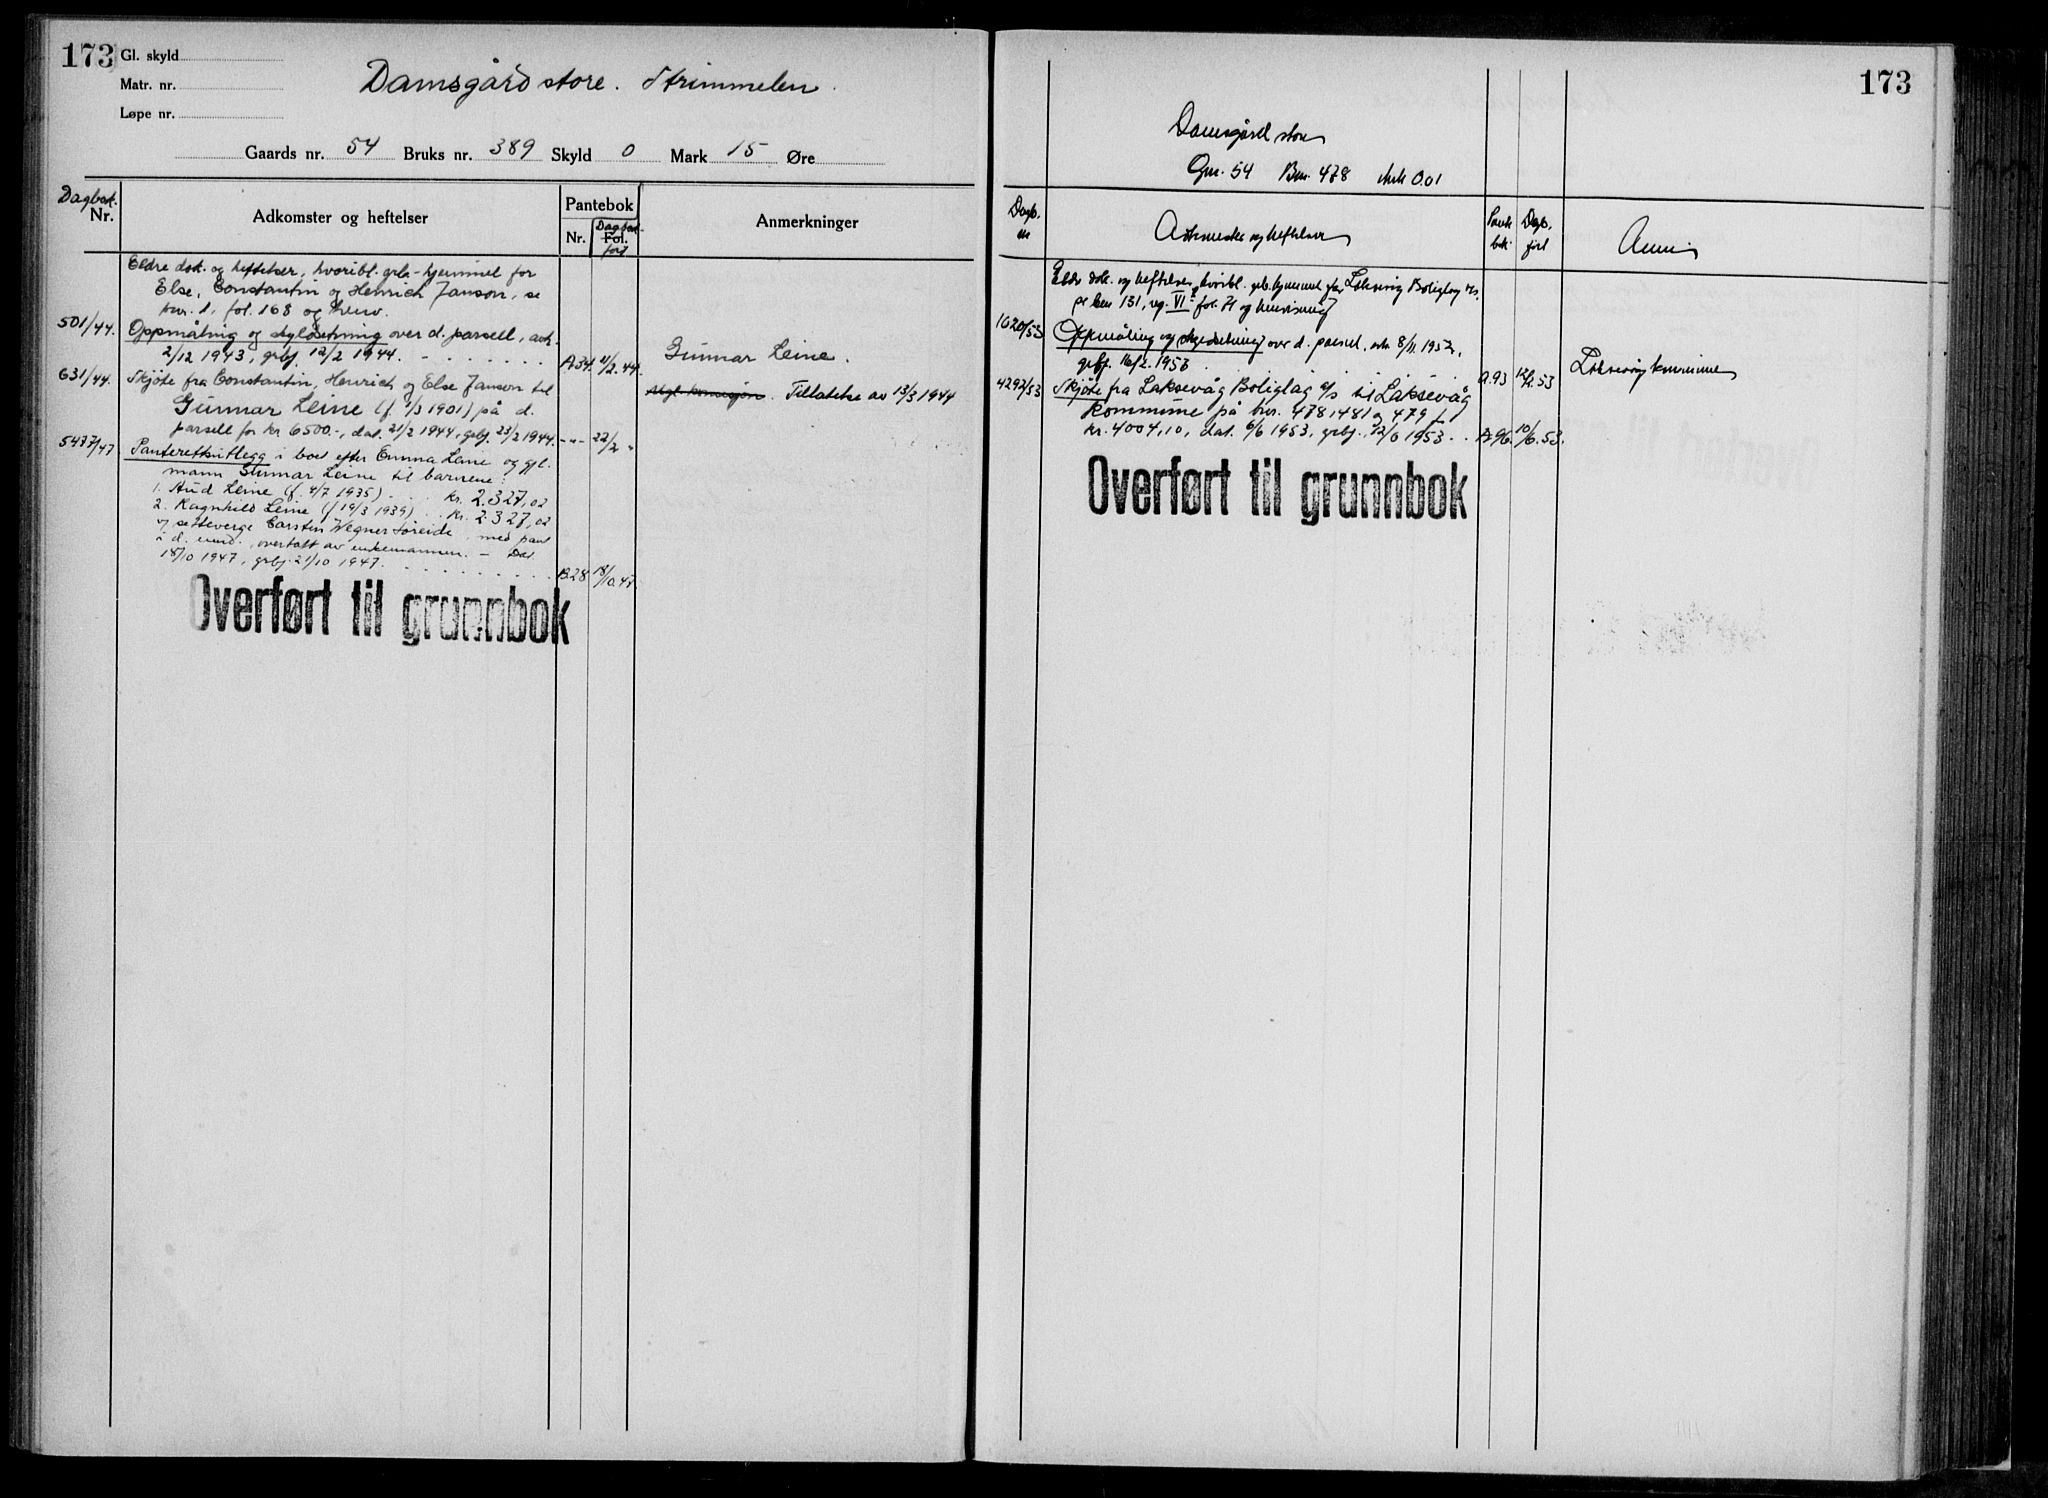 173
Gl. skyld
Matr. nr.
Løpe nr.
Damsgård store. Strimmelen.
Gaards nr. 54 Bruks nr. 389 Skyld 0 Mark 15 Øre
Dagbok.
Nr.
Adkomster og heftelser
Pantebok
Nr.
Dagbok-
Fol.
ført
Anmerkninger
Eldre dok. og heftelser, hvoribl. grla-hjemmel for
Else, Constantin og Henrich Janson, se
bnr. 1, fol. 168 og henv.
501/44. Oppmåling og skyldsetning over d. parsell, avh.
2/12 1943, grbj. 12/2 1944. A34. 11/2. 44. Gunnar Leine.
631/44. Skjöte fra Constantin, Henrich og Else Janson til
Mgl. konsesjon. Tillatelse av 13/3 1944
Gunnar Leine (f. 1/3 1901) på d.
parsell for kr 6500.-, dat. 21/2 1944, grbj. 23/2 1944. -"- 22/2 "
5437/47 Panterettsutlegg i boet efter Emma Leine og gjl.
mann Gunnar Leine til barnene:
1. Aud Leine (f. 4/7 1935) . . . kr. 2.327,02
2. Ragnhild Leine (f 19/3 1939) . . kr. 2.327,02
v/ setteverge Carsten Wegner Söreide, med pant
i d. eiend., overtatt av enkemannen. - Dat.
18/10 1947, grbj. 21/10 1947. B28 18/10.47.
Overført til grunnbok
173
Damsgård store
Gnr. 54 Bnr. 478 Mark 0.01
Dagb.
nr
Adkomster og heftelser
Pante
bok
Dagb.
ført
Anm
Eldre dok. og heftelser, hvoribl. grb. hjemmel for Laksevåg Boliglag A/s.
se bnr 131, reg. VI fol. 71 og henvisning
1020/53 Oppmåling og skyldsetning over d. parsel, avh. 8/11. 1952,
grbj. 16/2. 1953 A.93 12/2.53 Laksevåg kommune
4292/53 Skjöte fra Laksevåg Boliglag a/s til Laksevåg
kommune på bnr. 478, 481 og 479 f.
kr. 4004,10, dat. 6/6 1953, grbj. 12/6 1953. A96. 10/6.53.
Overført til grunnbok